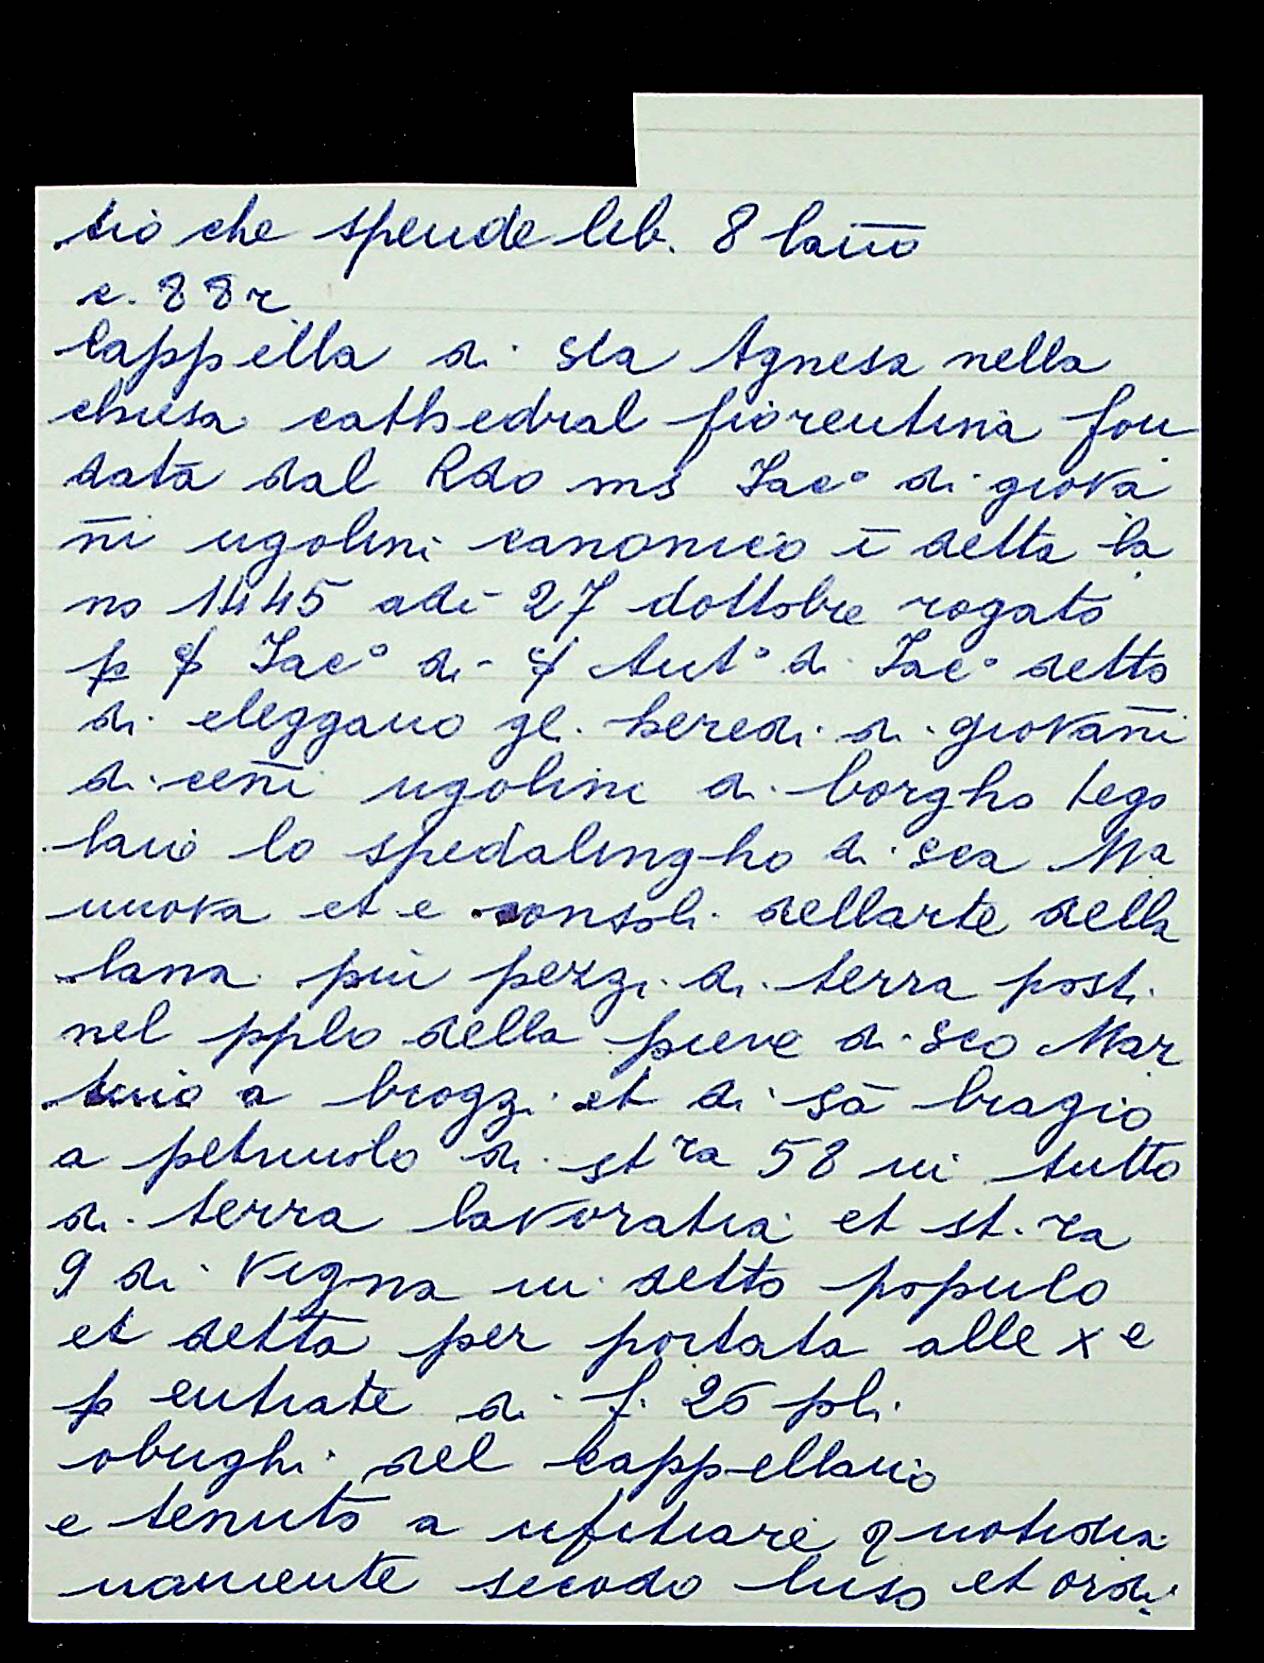 tio che spende lib. 8 lāno
c. 88r
Cappella di sta Agnesa nella
chiesa cathedral fiorentina fon
data dal Rdo ms Iac° di giova
n̄i ugolini canonico ī detta la
no 1445 adi 27 dottobre rogato
p ẜ Iac° di ẜ Ant° di Iac° detto
di eleggano gli heredi di giovan̄i
di cen̄i ugolini di borgho tego
laio lo spedalingho di sca Ma
nuova et e consoli dellarte della
lana più pezzi di terra posti
nel pplo della pieve di sco Mar
tino a brozzi et di sā bragio
a petriuolo di st ra 58 in tutto
di terra lavoratia et st. ra
9 di vigna in detto populo
et detta per portata alle x e
p entrate di f. 26 pli.
oblighi del cappellano
e tenuto a ufitiare quotidia
namente secōdo luso et ordi